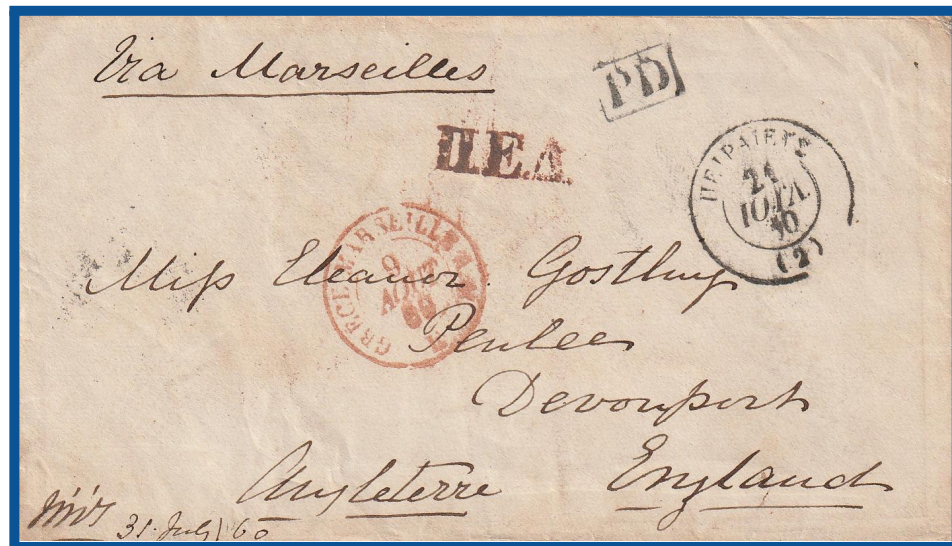 Via Marseilles
PD
Π.Ε.Δ.
ΠΕΙΡΑΙΕΥΣ
ΙΟΥΛ.
60
(2)
GRECE MARSEILLE
9
AOUT
60
Miss Eleanor
Penlee
Devonport
Angleterre England
31 July / 60